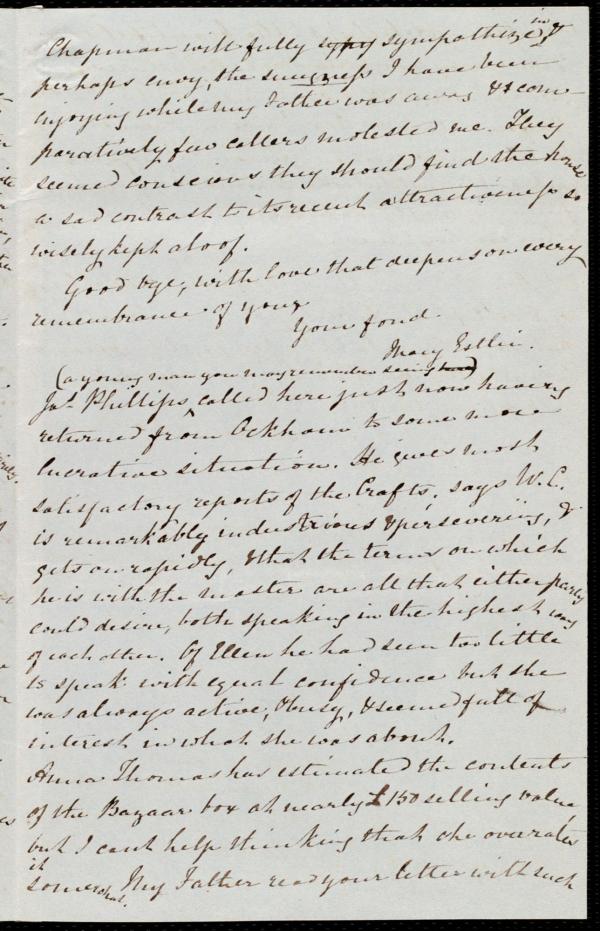 Chapman will fully sympathize in, &
perhaps envy, the snugness I have been
enjoying while my Father was away & com-
paratively few callers molested me. They
seemed conscious they should find the house
a sad contrast to its recent attractiveness so
wisely kept aloof.
Good bye, with love that deepens on every
remembrance of you,
Your fond
Mary Estlin.
(a young man you may remember seeing)
Jas. Phillips called here just now having
returned from Ockham to some more
lucrative situation. He gives most
satisfactory reports of the Crafts, says W.C.
is remarkably industrious & persevering, &
gets on rapidly, & that the terms on which
he is with the master are all that either party
could desire, both speaking in the highest way
of each other. Of Ellen he had seen too little
to speak with equal confidence but she
was always active, & busy, & seemed full of
interest in what she was about.
Anna Thomas has estimated the contents
of the Bazaar box at nearly £150 selling value
but I cant help thinking that she overrates
it
somewhat. My Father read your letter with such